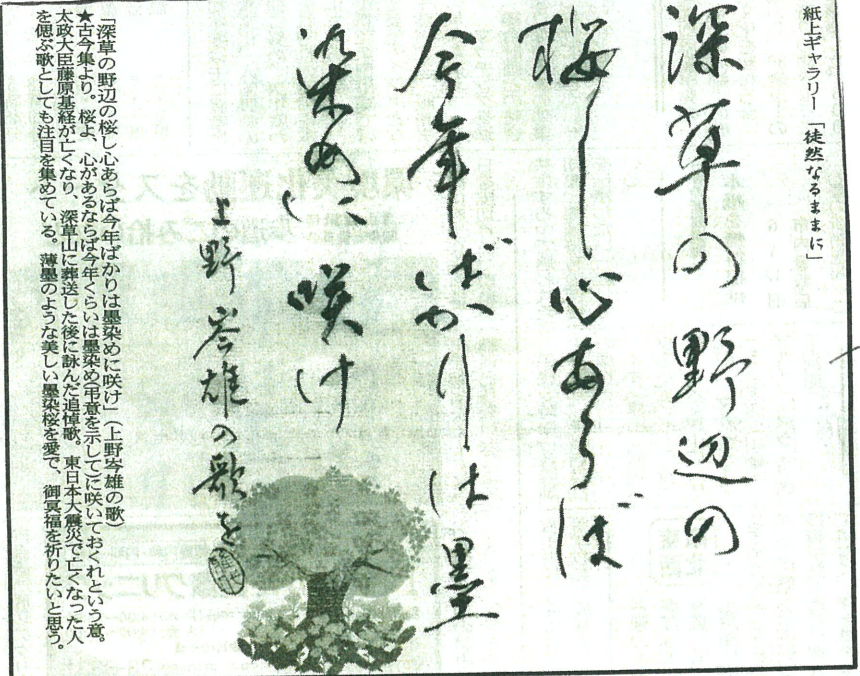 紙上ギャラリー「徒然なるままに」
深草の野辺の
桜し心あらば
今年ばかりは墨
染めに咲け
上野岑雄の歌を
「深草の野辺の桜し心あらば今年ばかりは墨染めに咲け」（上野岑雄の歌）
★古今集より。桜よ、心があるならば今年くらいは墨染め（弔意を示して）に咲いておくれという意。
太政大臣藤原基経が亡くなり、深草山に葬送した後に詠んだ追悼歌。東日本大震災で亡くなった人
を偲ぶ歌としても注目を集めている。薄墨のような美しい墨染桜を愛で、御冥福を祈りたいと思う。